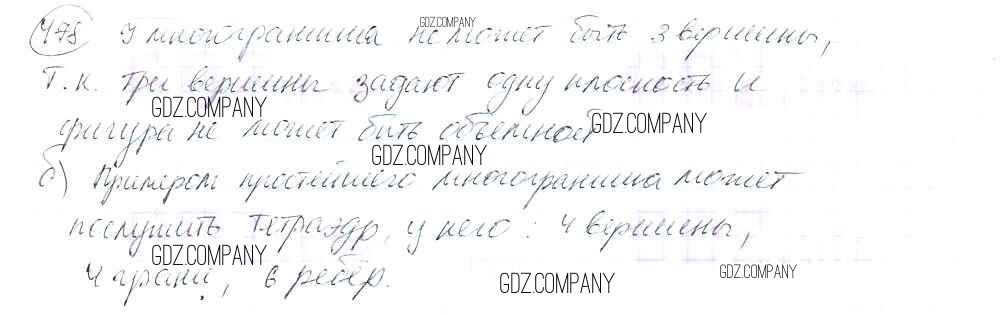 478 У многогранника не может быть 3 вершины,
GDZ.COMPANY
т.к. три вершины задают одну плоскость и
GDZ.COMPANY
фигура не может быть объемной
GDZ.COMPANY
GDZ.COMPANY
б) Примером простейшего многогранника может
послужить тетраэдр, у него: 4 вершены,
GDZ.COMPANY
4 грани, 6 ребер.
GDZ.COMPANY
GDZ.COMPANY